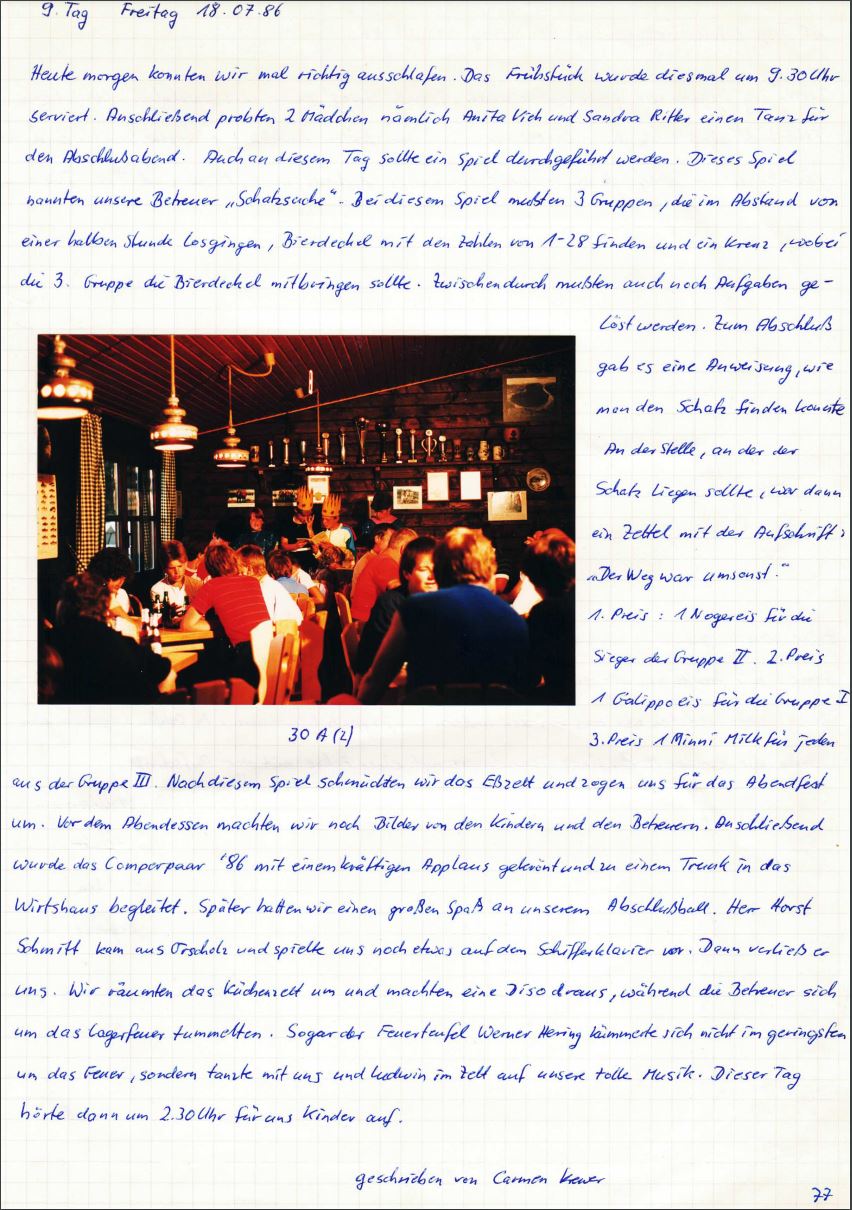 9. Tag Freitag 18.07.86
Heute morgen konnten wir mal richtig ausschlafen. Das Frühstück wurde diesmal um 9.30 Uhr
serviert. Anschließend probten 2 Mädchen nämlich Anita Vich und Sandra Ritter einen Tanz für
den Abschlußabend. Auch an diesem Tag sollte ein Spiel durchgeführt werden. Dieses Spiel
nannten unsere Betreuer „Schatzsuche“. Bei diesem Spiel mußten 3 Gruppen, die im Abstand von
einer halben Stunde losgingen, Bierdeckel mit den Zahlen von 1-28 finden und ein Kreuz, wobei
die 3. Gruppe die Bierdeckel mitbringen sollte. Zwischendurch mußten auch noch Aufgaben ge-
löst werden. Zum Abschluß
gab es eine Anweisung, wie
man den Schatz finden konnte
An der Stelle, an der der
Schatz liegen sollte, war dann
ein Zettel mit der Aufschrift:
„Der Weg war umsonst.“
1. Preis: 1 Nogereis für die
Sieger der Gruppe II. 2. Preis
1 Calippo eis für die Gruppe I
3. Preis 1 Minni Milk für jeden
30 A (2)
aus der Gruppe III. Nach diesem Spiel schmückten wir das Eßzelt und zogen uns für das Abendfest
um. Vor dem Abendessen machten wir noch Bilder von den Kindern und den Betreuern. Anschließend
wurde das Camperpaar '86 mit einem kräftigen Applaus gekrönt und zu einem Trunk in das
Wirtshaus begleitet. Später hatten wir einen großen Spaß an unserem Abschlußball. Herr Horst
Schmitt kam aus Orscholz und spielte uns noch etwas auf dem Schifferklavier vor. Dann verließ er
uns. Wir räumten das Küchenzelt um und machten eine Diso draus, während die Betreuer sich
um das Lagerfeuer tummelten. Sogar der Feuerteufel Werner Hering kümmerte sich nicht im geringsten
um das Feuer, sondern tanzte mit uns und Ludwin im Zelt auf unsere tolle Musik. Dieser Tag
hörte dann um 2.30 Uhr für uns Kinder auf.
geschrieben von Carmen
77